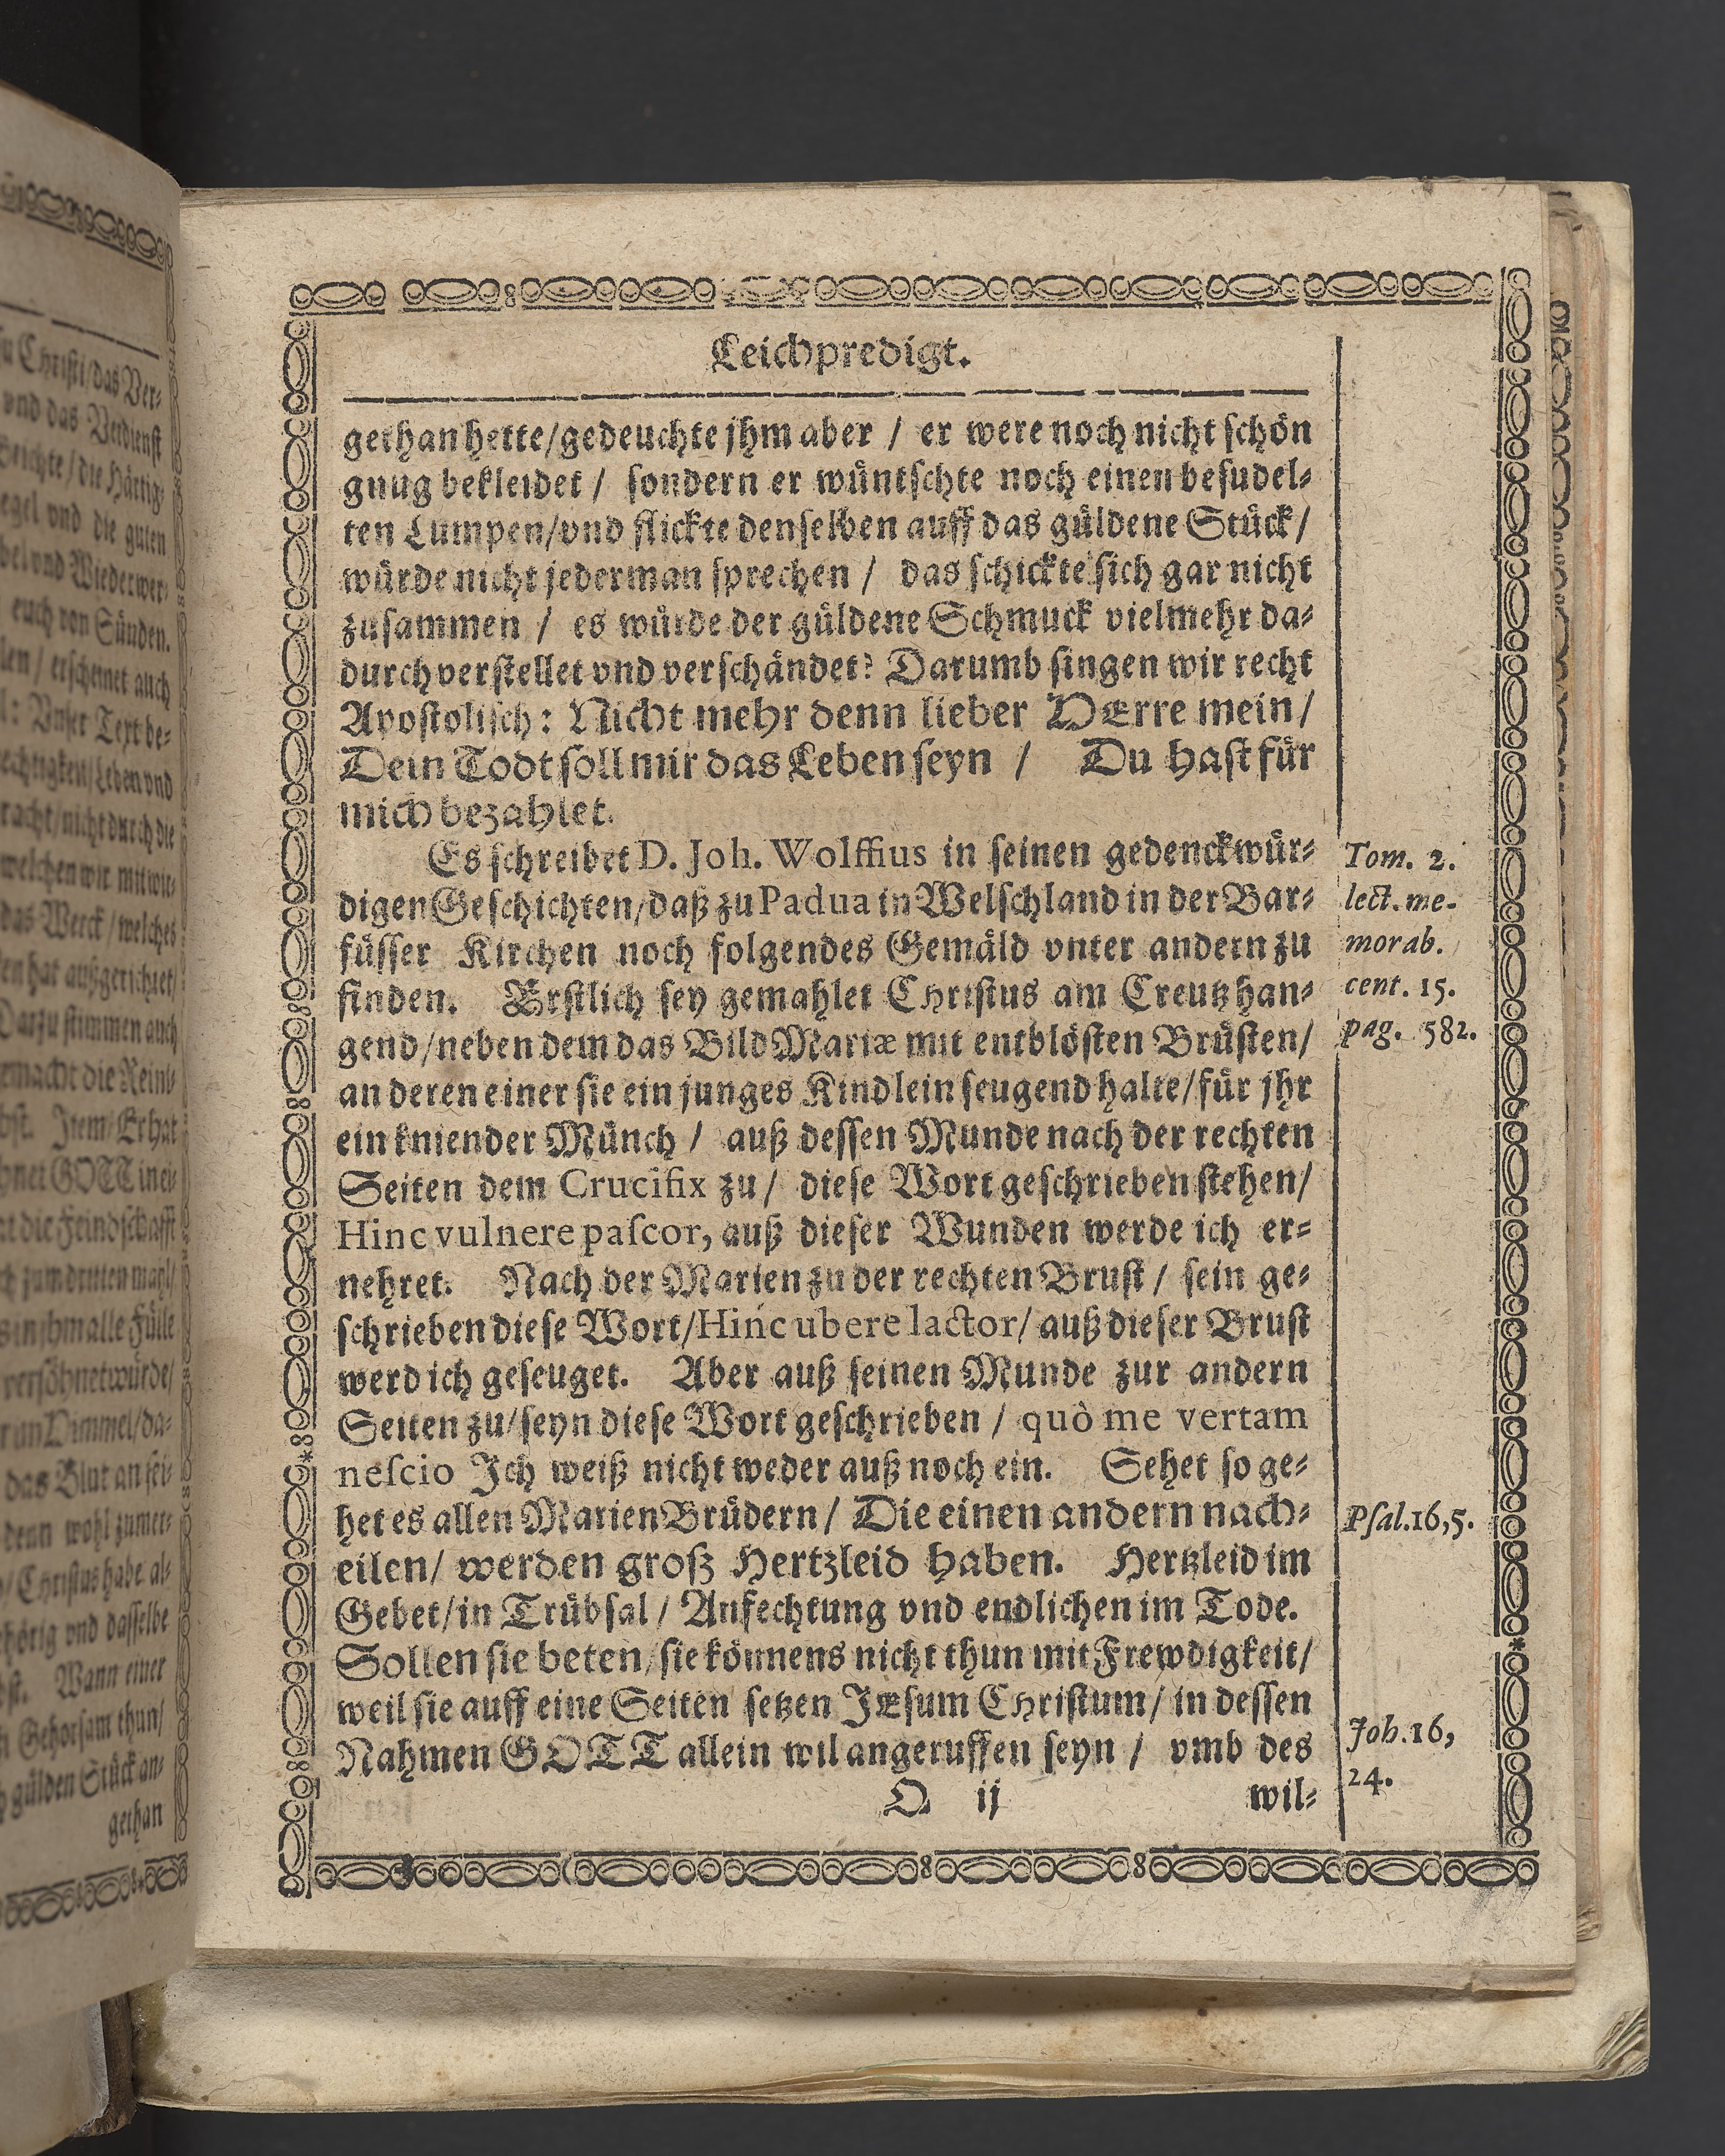 Leichpredigt.
gethan hette/gedeuchte jhm aber / er were noch nicht schön
gnug bekleidet / sondern er wüntschte noch einen besudel⸗
ten Lumpen/vnd flickte denselben auff das güldene Stück/
würde nicht jederman sprechen / das schickte sich gar nicht
zusammen / es würde der güldene Schmuck vielmehr da⸗
durch verstellet vnd verschändet? Darumb singen wir recht
Apostolisch: Nicht mehr denn lieber HErre mein/
Dein Todt soll mir das Leben seyn / Du hast für
mich bezahlet.
Es schreibet D. Joh. Wolffius in seinen gedenckwür⸗
digen Geschichten/daß zu Padua in Welschland in der Bar⸗
füsser Kirchen noch folgendes Gemäld vnter andern zu
finden. Erstlich sey gemahlet Christus am Creutz han⸗
gend/neben dem das Bild Mariæ mit entblösten Brüsten/
an deren einer sie ein junges Kindlein seugend halte/für jhr
ein kniender Münch / auß dessen Munde nach der rechten
Seiten dem Crucifix zu/ diese Wort geschrieben stehen/
Hinc vulnere pascor, auß dieser Wunden werde ich er⸗
nehret. Nach der Marien zu der rechten Brust / sein ge⸗
schrieben diese Wort/Hinc ubere lactor/ auß dieser Brust
werd ich geseuget. Aber auß seinen Munde zur andern
Seiten zu/seyn diese Wort geschrieben / quò me vertam
nescio Ich weiß nicht weder auß noch ein. Sehet so ge⸗
het es allen Marien Brüdern/ Die einen andern nach⸗
eilen/ werden groß Hertzleid haben. Hertzleid im
Gebet/in Trübsal / Anfechtung vnd endlichen im Tode.
Sollen sie beten/sie könnens nicht thun mit Frewdigkeit/
weil sie auff eine Seiten setzen JEsum Christum/ in dessen
Nahmen GOTT allein wil angeruffen seyn / vmb des
O ij wil⸗
Tom. 2.
lect. me-
morab.
cent. 15.
pag. 582.
Psal.16,5.
Joh.16,
24.
gethan